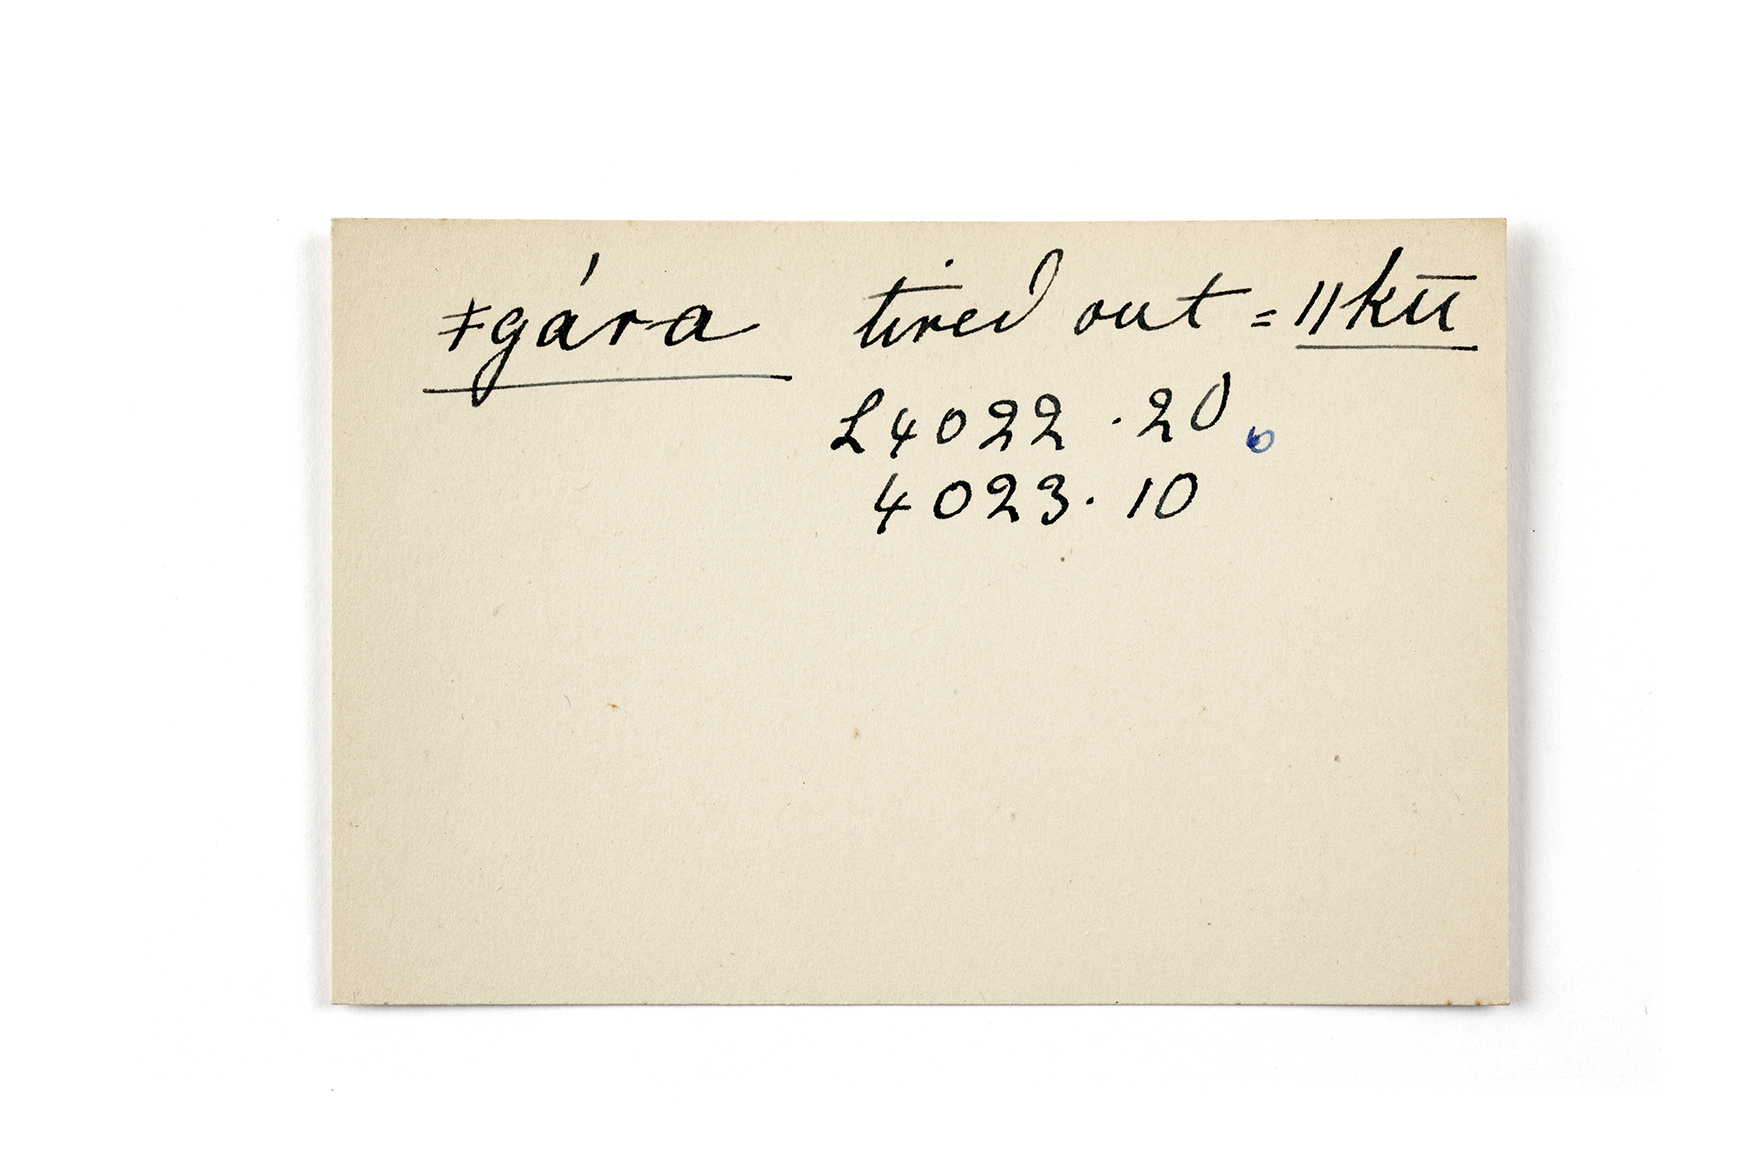 ǂgára tired out = ǁkū
L4022 . 20
4023 . 10